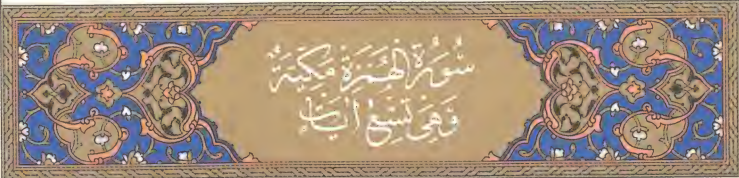 سُورَةُ الْهُمَزَةِ مَكِّيَّةٌ
وَهِيَ تِسْعُ آيَاتٍ